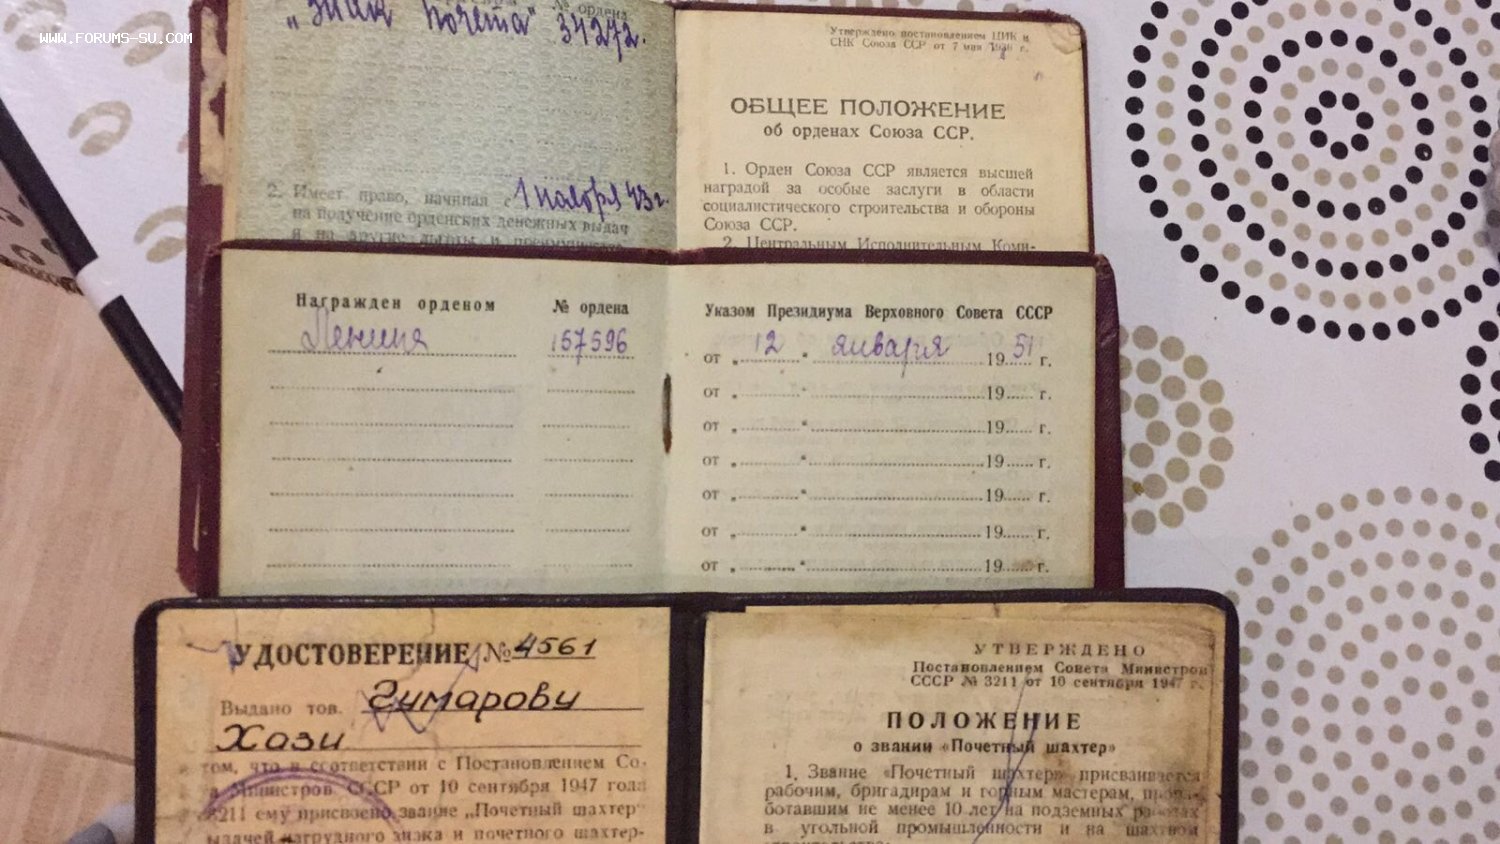 WWW.FORUMS-SU.COM
„Знак Почета" 34272.
№ ордена
2. Имеет право, начиная с 1 ноября 43 г.
на получение орденских денежных выдач
и на другие льготы и
Утверждено постановлением ЦИК и
СНК Союза ССР от 7 мая 1936 г.
ОБЩЕЕ ПОЛОЖЕНИЕ
об орденах Союза ССР.
1. Орден Союза ССР является высшей
наградой за особые заслуги в области
социалистического строительства и обороны
Союза ССР.
2. Центральным Исполнительным Коми-
Награжден орденом № ордена
Ленина 157596
Указом Президиума Верховного Совета СССР
от „ 12 " января 19 51 г.
от „ " 19 г.
от „ " 19 г.
от „ " 19 г.
от „ " 19 г.
от „ " 19 г.
от „ " 19 г.
УДОСТОВЕРЕНИЕ № 4561
Выдано тов. Гумарову
Хази
том, что в соответствии с Постановлением Со-
а Министров СССР от 10 сентября 1947 года
3211 ему присвоено звание „Почетный шахтер"
выдачей нагрудного знака и почетного шахтер-
УТВЕРЖДЕНО
Постановлением Совета Министров
СССР № 3211 от 10 сентября 1947 г.
ПОЛОЖЕНИЕ
о звании «Почетный шахтер»
1. Звание «Почетный шахтер» присваивается
рабочим, бригадирам и горным мастерам, прора-
ботавшим не менее 10 лет на подземных работах
в угольной промышленности и на шахтном